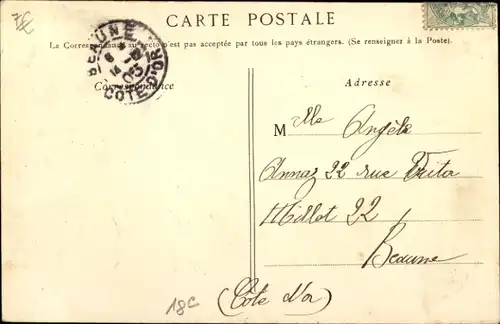 7€
CARTE POSTALE
La Correspondance au recto n'est pas acceptée par tous les pays étrangers. (Se renseigner à la Poste).
BEAUNE
CÔTE-D'OR
Correspondance
Adresse
Mlle Angèle
22 rue
Millot 22
Beaune
(Côte d'or)
18c